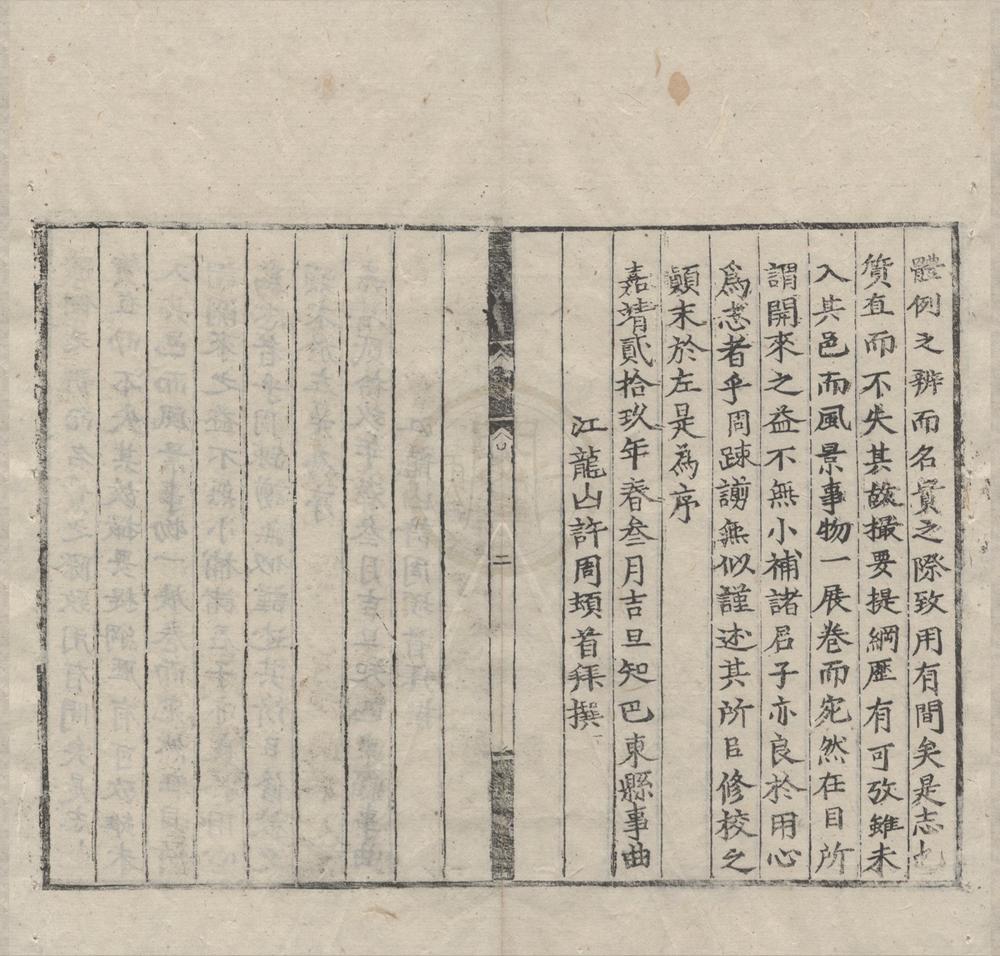 體例之辨而名實之際致用有間矣是志也
質直而不失其故撮要提綱歷有可攷雖未
入其邑而風景事物一展卷而宛然在目所
謂開來之益不無小補諸君子亦良於用心
爲志者乎周踈謭無似謹述其所㠯修校之
顛末於左是為序
嘉靖貳拾玖年春叁月吉旦知巴東縣事曲
江龍山許周頓首拜撰
二